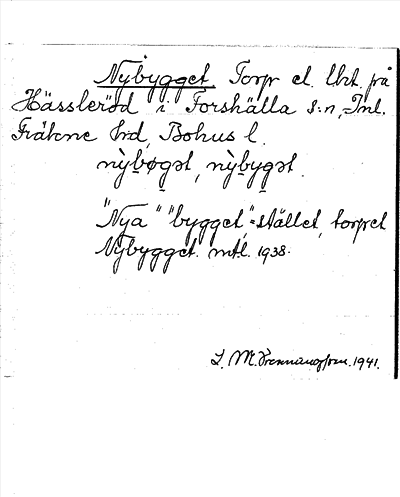 Nybygget Torp el. lht. på
Hässleröd i Forshälla s:n, Inl.
Fräkne hrd, Bohus l.
nỳbøgət, nỳbygət.
"Nya" "bygget," = stället, torpet
Nybygget. mtl. 1938.
L. M. 1941.